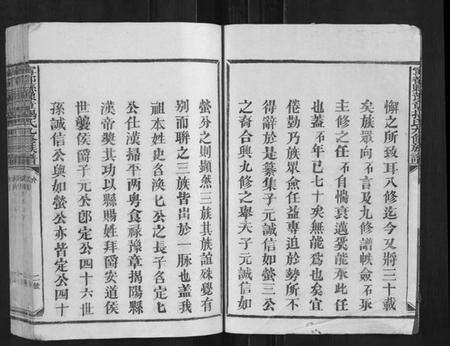 懈之所致耳八修迄今又將三十載
矣族眾向不言及九修譜帙僉不承
主修之任不自惴衰邁冀能承此任
也蓋不年已七十矣無能為也矣宜
倦勤乃族眾僉任益專迫於勢所不
得辭於是纂集子元誠信如螢三公
之裔合與九修之舉夫子元誠信如
螢分之則顯然三族其族誼殊覺有
別而聯之三族皆出於一脉也蓋我
祖本姓史名渙匕公之長子名定匕
公仕漢掃平兩粵食祿漳章揭陽縣
漢帝獎其功以縣賜姓拜爵安道侯
世襲侯爵子元公即定公四十六世
孫誠信公與如螢公亦皆定公四十